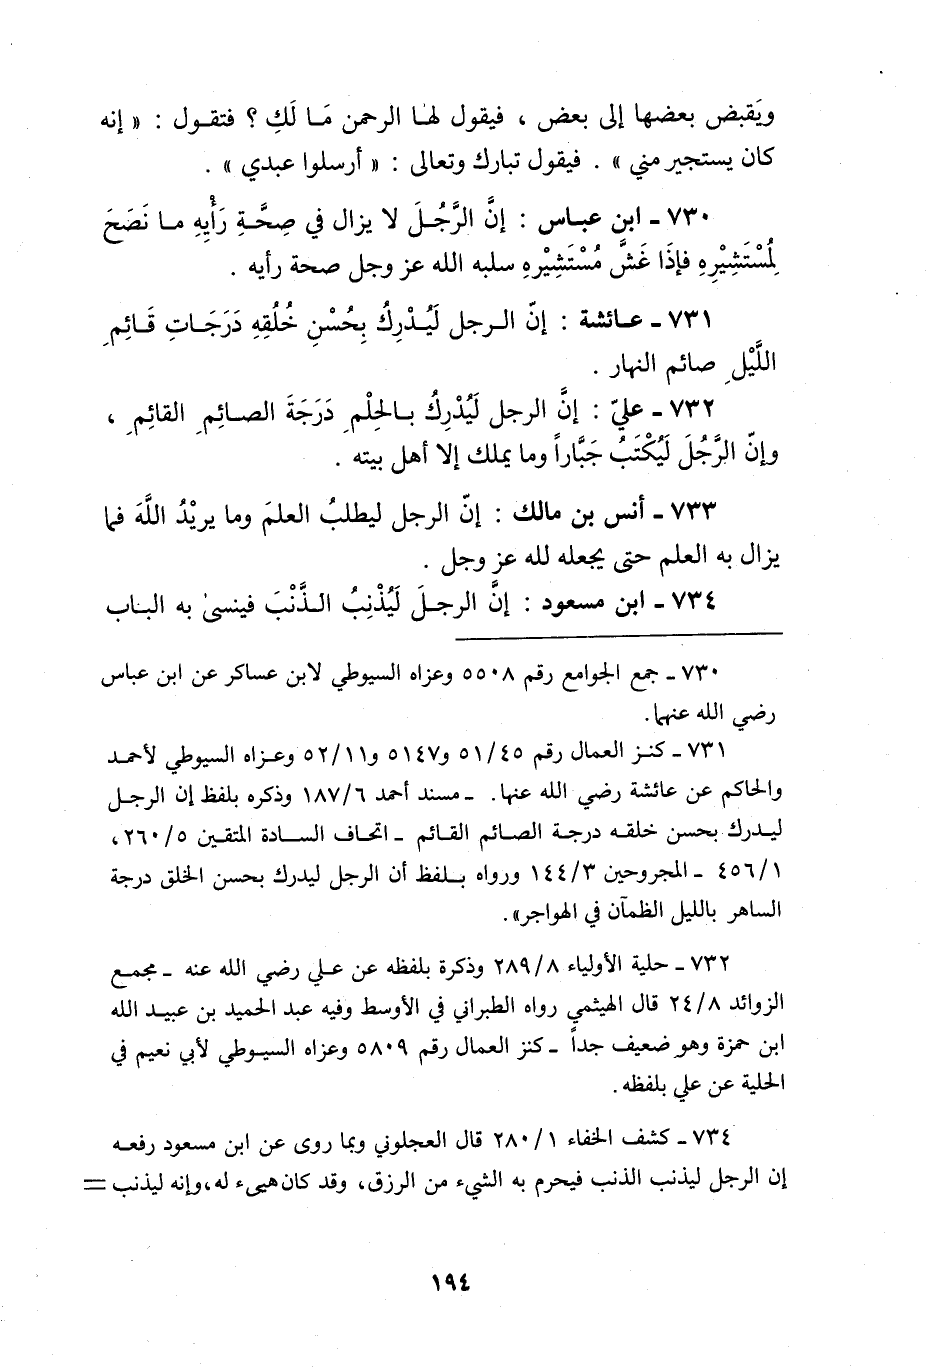 ويَقبض بعضها إلى بعض ، فيقول لها الرحمن مَا لَكِ ؟ فتقول : « إنه
كان يستجير مني » . فيقول تبارك وتعالى : « أرسلوا عبدي » .
٧٣٠ ـ ابن عباس : إنَّ الرَّجُلَ لا يزال في صِحَّةِ رَأْيِهِ ما نَصَحَ
لِمُسْتَشِيْرِهِ فإذَا غَشَّ مُسْتَشِيْرِهِ سلبه الله عز وجل صحة رأيه .
٧٣١ ـ عائشة : إنّ الرجل لَيُدْرِكُ بِحُسْنِ خُلُقِهِ دَرَجَاتِ قَائِمِ
اللَّيْلِ صائم النهار .
٧٣٢ ـ عليّ : إنَّ الرجل لَيُدْرِكُ بالحِلْمِ دَرَجَةَ الصائِمِ القائِمِ ،
وإنّ الرَّجُلَ لَيُكْتَبُ جَبَّاراً وما يملك إلا أهل بيته .
٧٣٣ ـ أنس بن مالك : إنّ الرجل ليطلبُ العلمَ وما يريْدُ اللَّهَ فما
يزال به العلم حتى يجعله لله عز وجل .
٧٣٤ ـ ابن مسعود : إنَّ الرجلَ لَيُذْنِبُ الذَّنْبَ فينسىٰ به الباب
٧٣٠ ـ جمع الجوامع رقم ٥٥٠٨ وعزاه السيوطي لابن عساكر عن ابن عباس
رضي الله عنهما.
٧٣١ ـ كنز العمال رقم ٥١/٤٥ و٥١٤٧ و٥٢/١١ وعزاه السيوطي لأحمد
والحاكم عن عائشة رضي الله عنها. ـ مسند أحمد ١٨٧/٦ وذكره بلفظ إن الرجل
ليدرك بحسن خلقه درجة الصائم القائم ـ اتحاف السادة المتقين ٢٦٠/٥،
٤٥٦/١ ـ المجروحين ١٤٤/٣ ورواه بلفظ أن الرجل ليدرك بحسن الخلق درجة
الساهر بالليل الظمآن في الهواجر».
٧٣٢ ـ حلية الأولياء ٢٨٩/٨ وذكرة بلفظه عن علي رضي الله عنه ـ مجمع
الزوائد ٢٤/٨ قال الهيثمي رواه الطبراني في الأوسط وفيه عبد الحميد بن عبيد الله
ابن حمزة وهو ضعيف جداً ـ كنز العمال رقم ٥٨٠٩ وعزاه السيوطي لأبي نعيم في
الحلية عن علي بلفظه.
٧٣٤ ـ كشف الخفاء ٢٨٠/١ قال العجلوني وبما روى عن ابن مسعود رفعه
إن الرجل ليذنب الذنب فيحرم به الشيء من الرزق، وقد كان هيىء له، وإنه ليذنب =
١٩٤